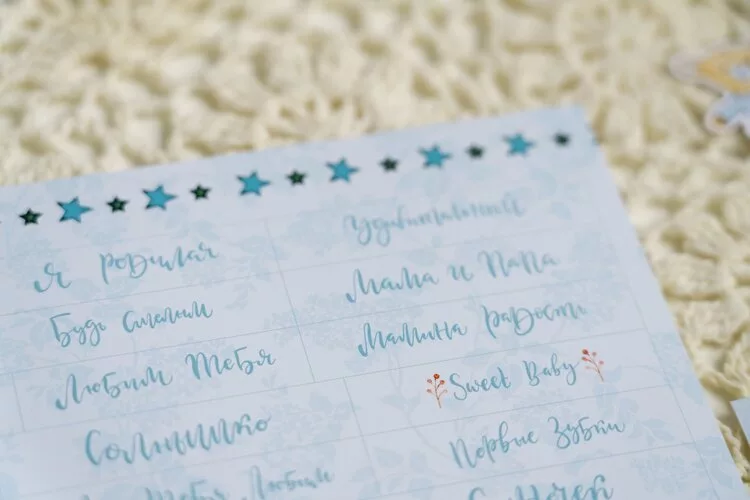 Я родилая
Удивительный
Будь Смелым
Мама и Папа
Любим Тебя
Мамина радость
Sweet Baby
Солнышко
Первые Зубки
Тебя Любим